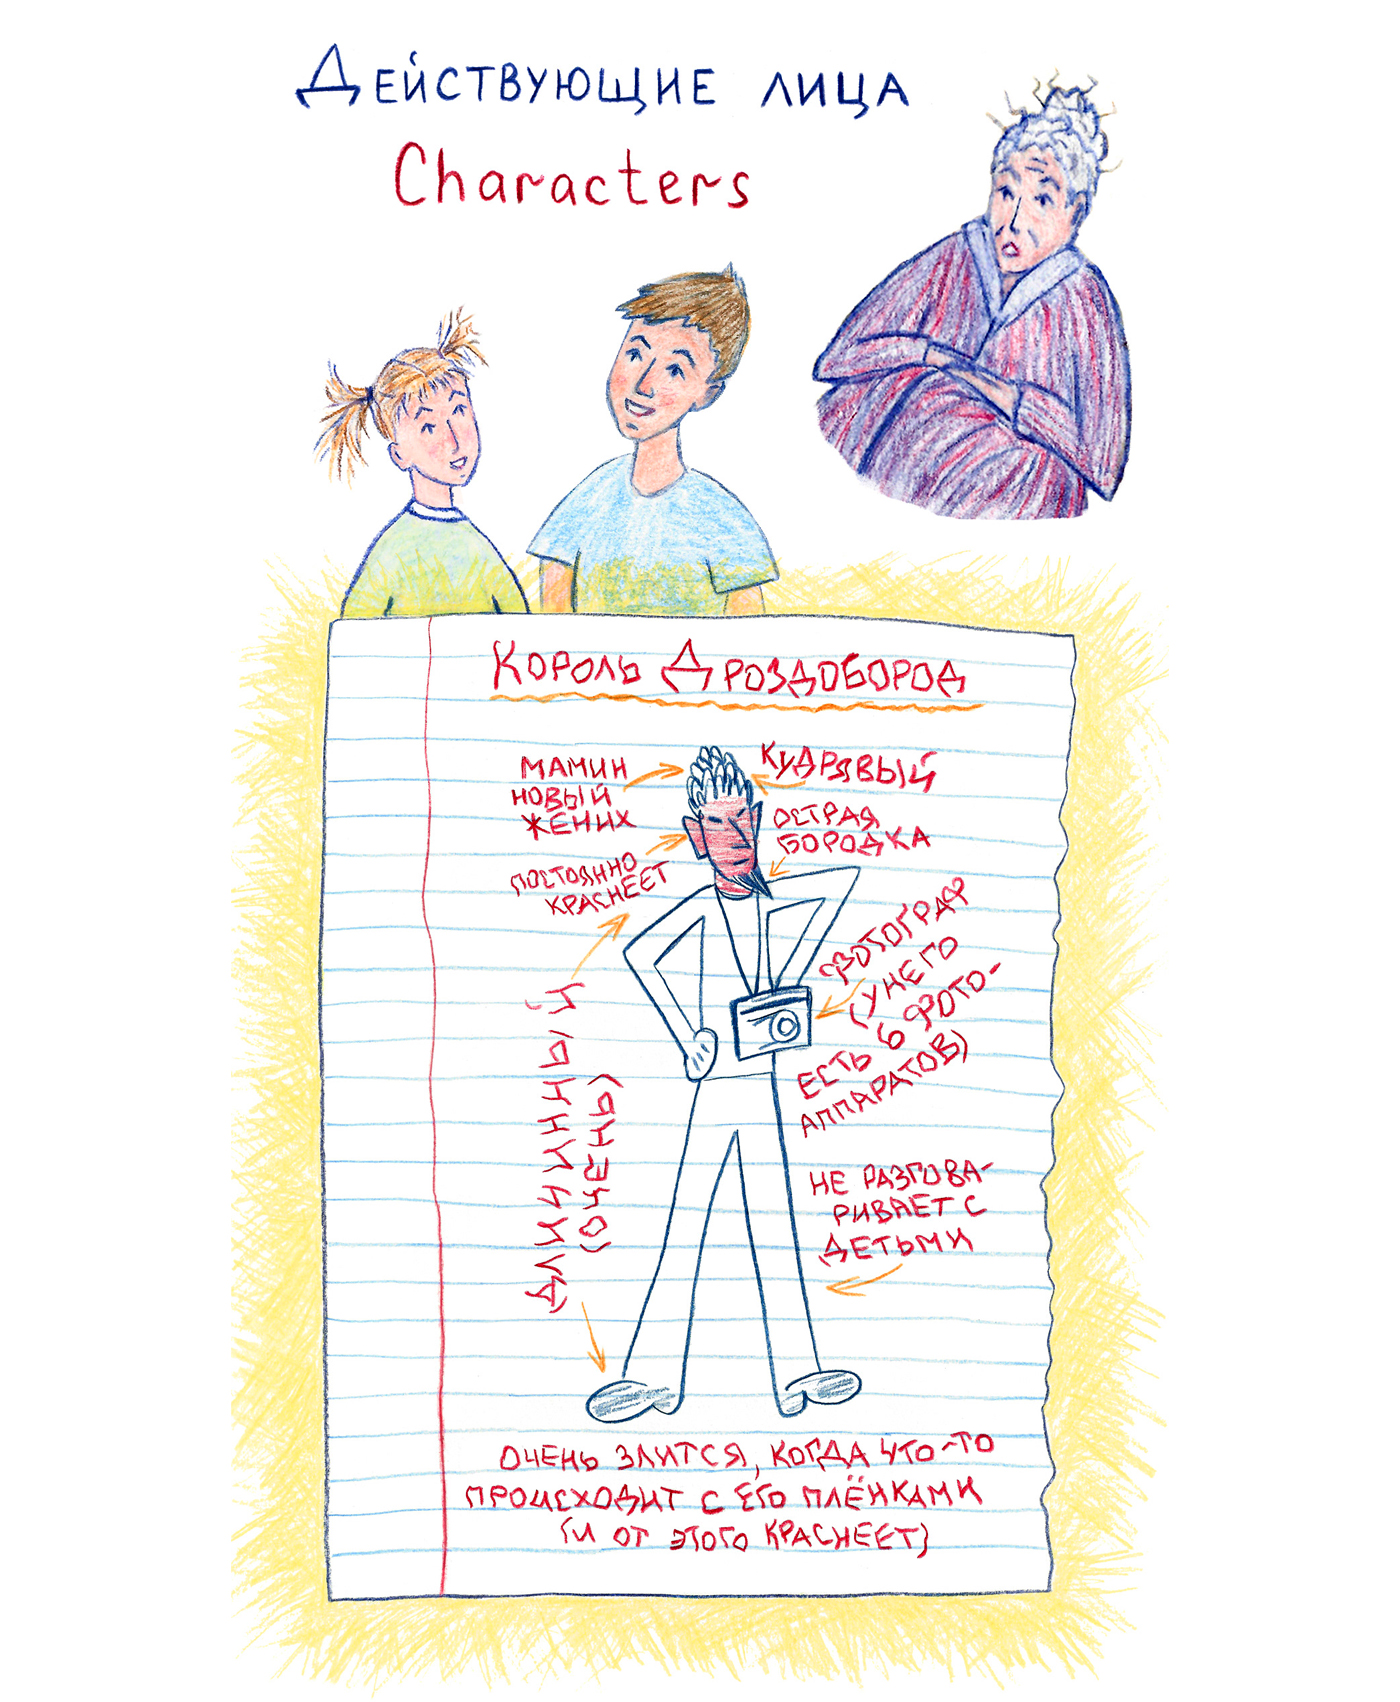 Действующие лица
Characters
Король Дроздобород
мамин
новый
жених
кудрявый
острая
бородка
постоянно
краснеет
фотограф
(у него
есть 6 фото-
аппаратов)
длинный
(очень)
не разгова-
ривает с
детьми
очень злится, когда что-то
происходит с его плёнками
(и от этого краснеет)